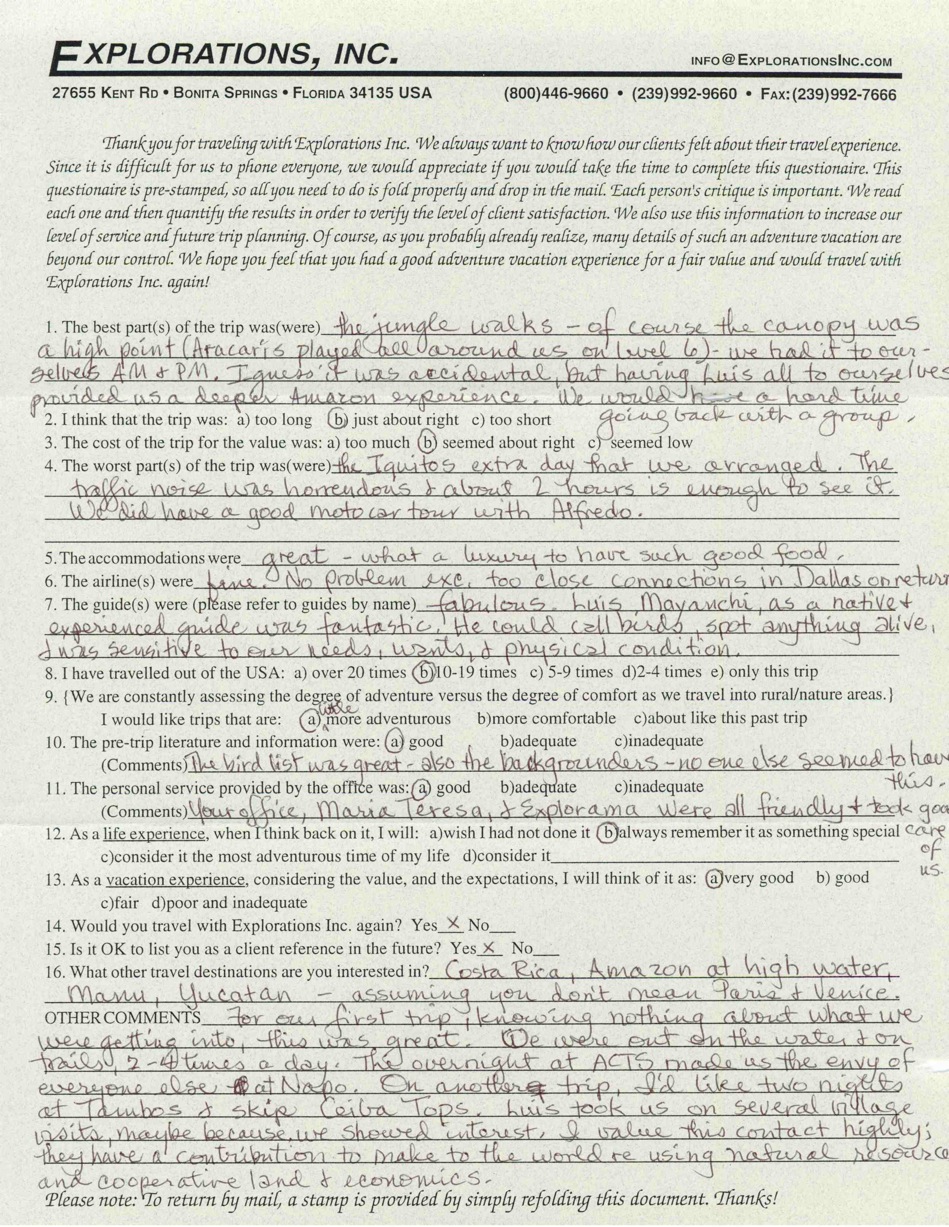 EXPLORATIONS, INC.
INFO@EXPLORATIONSINC.COM
27655 KENT RD • BONITA SPRINGS • FLORIDA 34135 USA (800)446-9660 • (239)992-9660 • FAX:(239)992-7666
Thank you for traveling with Explorations Inc. We always want to know how our clients felt about their travel experience.
Since it is difficult for us to phone everyone, we would appreciate if you would take the time to complete this questionaire. This
questionaire is pre-stamped, so all you need to do is fold properly and drop in the mail. Each person's critique is important. We read
each one and then quantify the results in order to verify the level of client satisfaction. We also use this information to increase our
level of service and future trip planning. Of course, as you probably already realize, many details of such an adventure vacation are
beyond our control. We hope you feel that you had a good adventure vacation experience for a fair value and would travel with
Explorations Inc. again!
1. The best part(s) of the trip was(were) the jungle walks - of course the canopy was
a high point (Aracaris played all around us on level 6) - we had it to our-
selves AM & PM. I guess it was accidental, but having Luis all to ourselves
provided us a deeper Amazon experience. We would have a hard time
2. I think that the trip was: a) too long b) just about right c) too short going back with a group.
3. The cost of the trip for the value was: a) too much b) seemed about right c) seemed low
4. The worst part(s) of the trip was(were) the Iquitos extra day that we arranged. The
traffic noise was horrendous & about 2 hours is enough to see it.
We did have a good motocar tour with Alfredo.
5. The accommodations were great - what a luxury to have such good food.
6. The airline(s) were fine. No problem exc. too close connections in Dallas on return
7. The guide(s) were (please refer to guides by name) fabulous. Luis Mayanchi, as a native &
experienced guide was fantastic. He could call birds, spot anything alive,
& was sensitive to our needs, wants, & physical condition.
8. I have travelled out of the USA: a) over 20 times b)10-19 times c) 5-9 times d)2-4 times e) only this trip
9. {We are constantly assessing the degree of adventure versus the degree of comfort as we travel into rural/nature areas.}
I would like trips that are: a) little more adventurous b)more comfortable c)about like this past trip
10. The pre-trip literature and information were: a) good b)adequate c)inadequate
(Comments) The bird list was great - also the backgrounders - no one else seemed to have
this.
11. The personal service provided by the office was: a) good b)adequate c)inadequate
(Comments) Your office, Maria Teresa, & Explorama were all friendly & took good
12. As a life experience, when I think back on it, I will: a)wish I had not done it b)always remember it as something special care
of
c)consider it the most adventurous time of my life d)consider it
us.
13. As a vacation experience, considering the value, and the expectations, I will think of it as: a)very good b) good
c)fair d)poor and inadequate
14. Would you travel with Explorations Inc. again? Yes X No
15. Is it OK to list you as a client reference in the future? Yes X No
16. What other travel destinations are you interested in? Costa Rica, Amazon at high water,
Manu, Yucatan - assuming you don't mean Paris & Venice.
OTHER COMMENTS For our first trip, knowing nothing about what we
were getting into, this was great. We were out on the water & on
trails, 2-4 times a day. The overnight at ACTS made us the envy of
everyone else at Napo. On another trip, I'd like two nights
at Tambos & skip Ceiba Tops. Luis took us on several village
visits, maybe because we showed interest. I value this contact highly;
they have a contribution to make to the world re using natural resource
and cooperative land & economics.
Please note: To return by mail, a stamp is provided by simply refolding this document. Thanks!